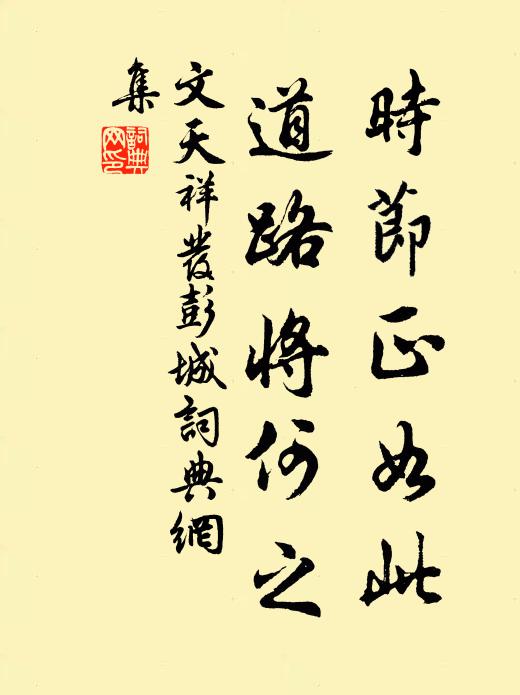 時節正如此
道路將何之
文天祥發彭城詞典網
集
詞典
网印